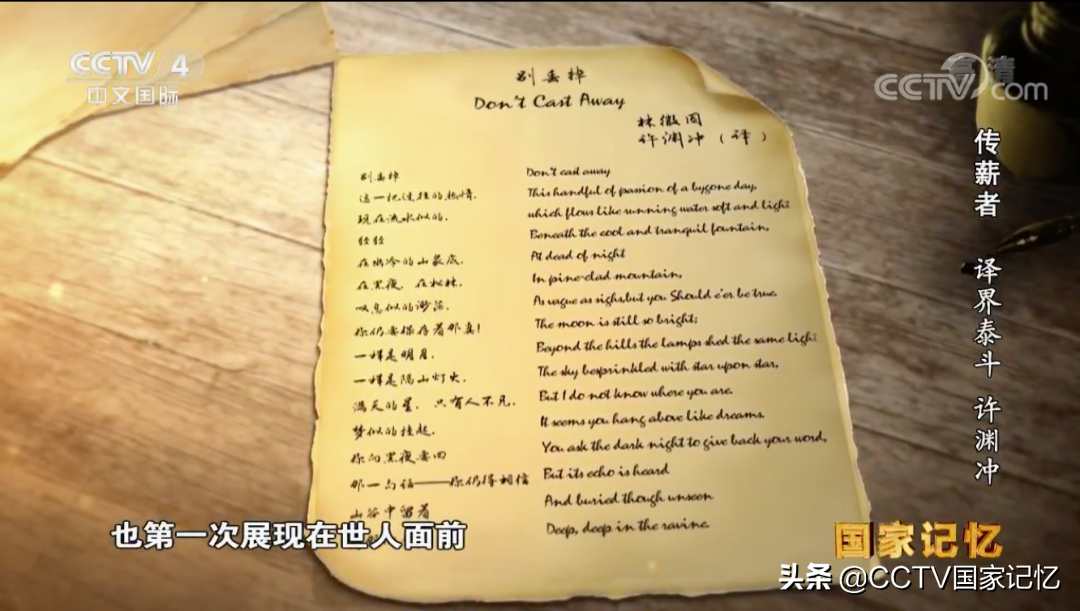 CCTV 4
中文国际
CCTV.com
高清
别丢掉
Don't Cast Away
林徽因
许渊冲(译)
别丢掉
这一把过往的热情,
现在流水似的,
轻轻
在幽冷的山泉底,
在黑夜,在松林,
叹息似的渺茫,
你仍要保存着那真!
一样是明月,
一样是隔山灯火,
满天的星,只有人不见,
梦似的挂起,
你向黑夜要回
那一句话——你仍得相信
山谷中留着
Don't cast away
This handful of passion of a bygone day,
which flows like running water soft and light
Beneath the cool and tranquil fountain,
At dead of night
In pine-clad mountain,
As vague as sighs, but you Should e'er be true.
The moon is still so bright;
Beyond the hills the lamps shed the same light
The sky besprinkled with star upon star,
But I do not know where you are.
It seems you hang above like dreams.
You ask the dark night to give back your word,
But its echo is heard
And buried though unseen
Deep, deep in the ravine.
传薪者 译界泰斗 许渊冲
也第一次展现在世人面前
国家记忆
头条 @CCTV国家记忆